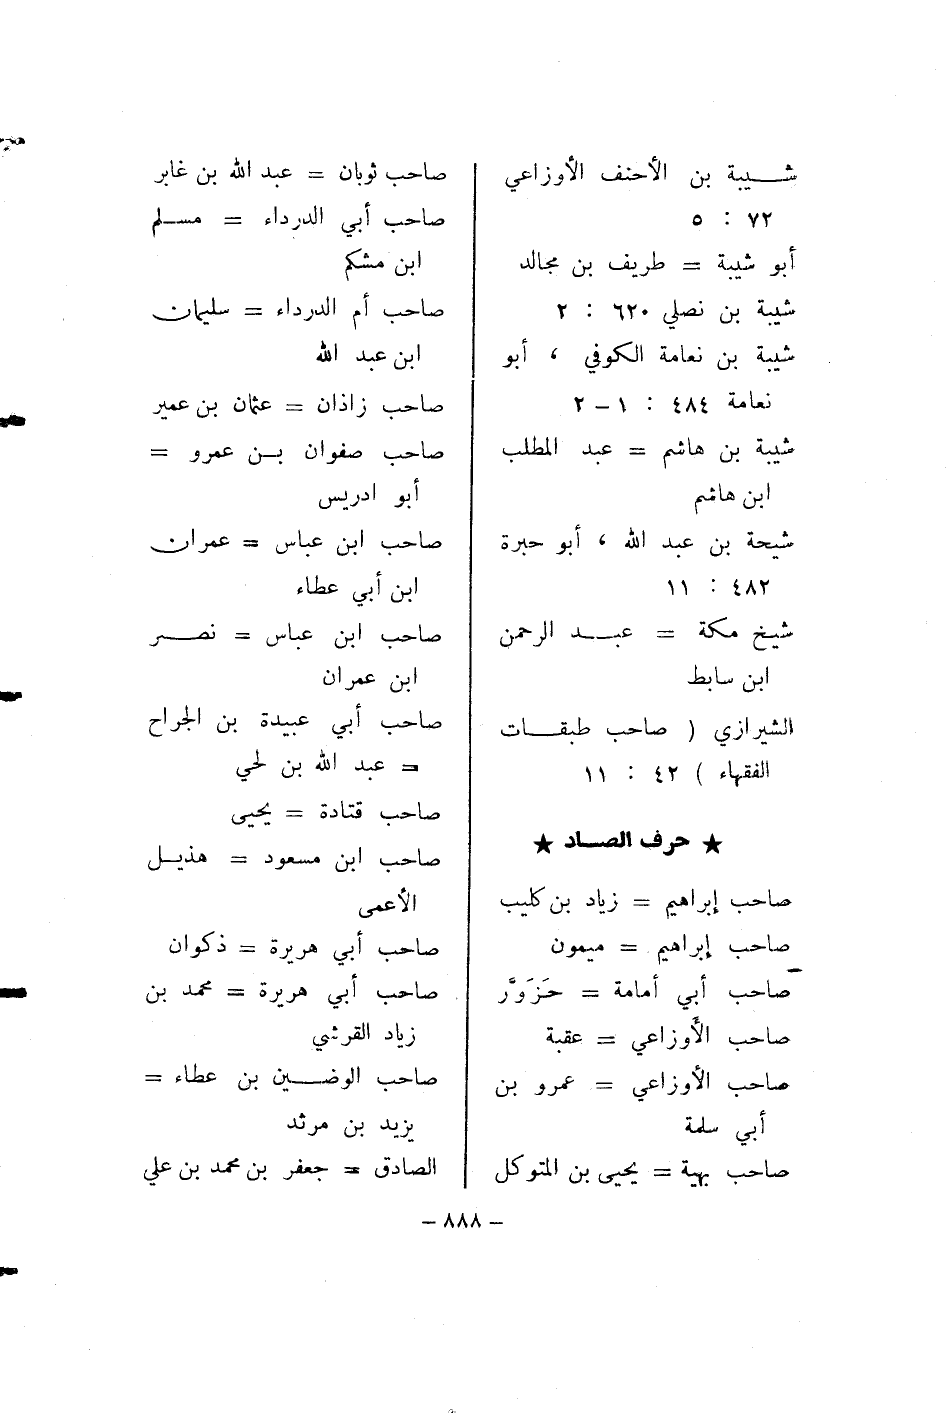 شيبة بن الأحنف الأوزاعي
٧٢ : ٥
أبو شيبة = طريف بن مجالد
شيبة بن نصلي ٦٢٠ : ٢
شيبة بن نعامة الكوفي ، أبو
نعامة ٤٨٤ : ١ - ٢
شيبة بن هاشم = عبد المطلب
ابن هاشم
شيحة بن عبد الله ، أبو حبرة
٤٨٢ : ١١
شيخ مكة = عبد الرحمن
ابن سابط
الشيرازي ( صاحب طبقات
الفقهاء ) ٤٢ : ١١
★ حرف الصاد ★
صاحب إبراهيم = زياد بن كليب
صاحب إبراهيم = ميمون
صاحب أبي أمامة = حَزَوَّر
صاحب الأوزاعي = عقبة
صاحب الأوزاعي = عمرو بن
أبي سلمة
صاحب بهية = يحيى بن المتوكل
صاحب ثوبان = عبد الله بن غابر
صاحب أبي الدرداء = مسلم
ابن مشكم
صاحب أم الدرداء = سليمان
ابن عبد الله
صاحب زاذان = عثمان بن عمير
صاحب صفوان بن عمرو =
أبو ادريس
صاحب ابن عباس = عمران
ابن أبي عطاء
صاحب ابن عباس = نصر
ابن عمران
صاحب أبي عبيدة بن الجراح
= عبد الله بن لحي
صاحب قتادة = يحيى
صاحب ابن مسعود = هذيل
الأعمى
صاحب أبي هريرة = ذكوان
صاحب أبي هريرة = محمد بن
زياد القرشي
صاحب الوضين بن عطاء =
يزيد بن مرثد
الصادق = جعفر بن محمد بن علي
- ٨٨٨ -